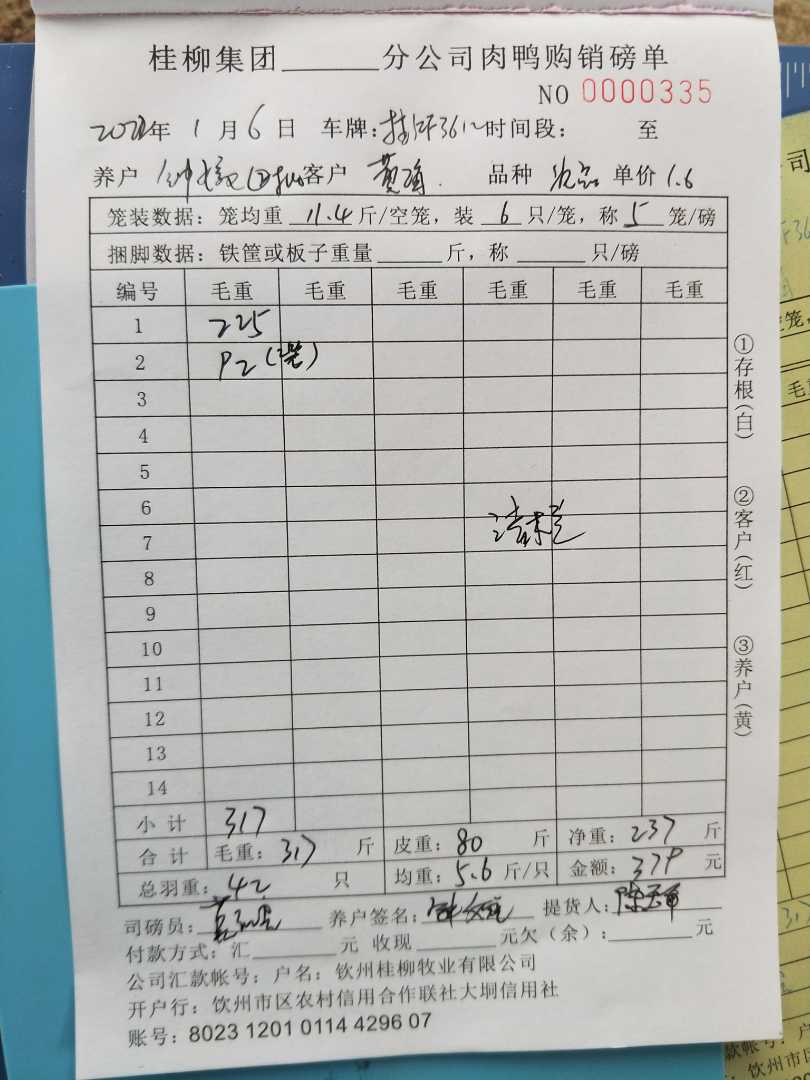 桂柳集团______分公司肉鸭购销磅单
NO 0000335
年 1 月 6 日 车牌: 时间段: 至
养户 客户 黄 品种 次品 单价 1.6
笼装数据: 笼均重 11.4 斤/空笼, 装 6 只/笼, 称 5 笼/磅
捆脚数据: 铁筐或板子重量______斤, 称______只/磅
编号 毛重 毛重 毛重 毛重 毛重 毛重
1 225
2 92 (2笼)
3
4
5
6
7
8
9
10
11
12
13
14
小 计 317
合 计 毛重: 317 斤 皮重: 80 斤 净重: 237 斤
总羽重: 42 只 均重: 5.6 斤/只 金额: 379 元
司磅员: 养户签名: 提货人: 陈
付款方式: 汇______元 收现______元欠(余):______元
公司汇款帐号: 户名: 钦州桂柳牧业有限公司
开户行: 钦州市区农村信用合作联社大垌信用社
账号: 8023 1201 0114 4296 07
①存根(白)
②客户(红)
③养户(黄)